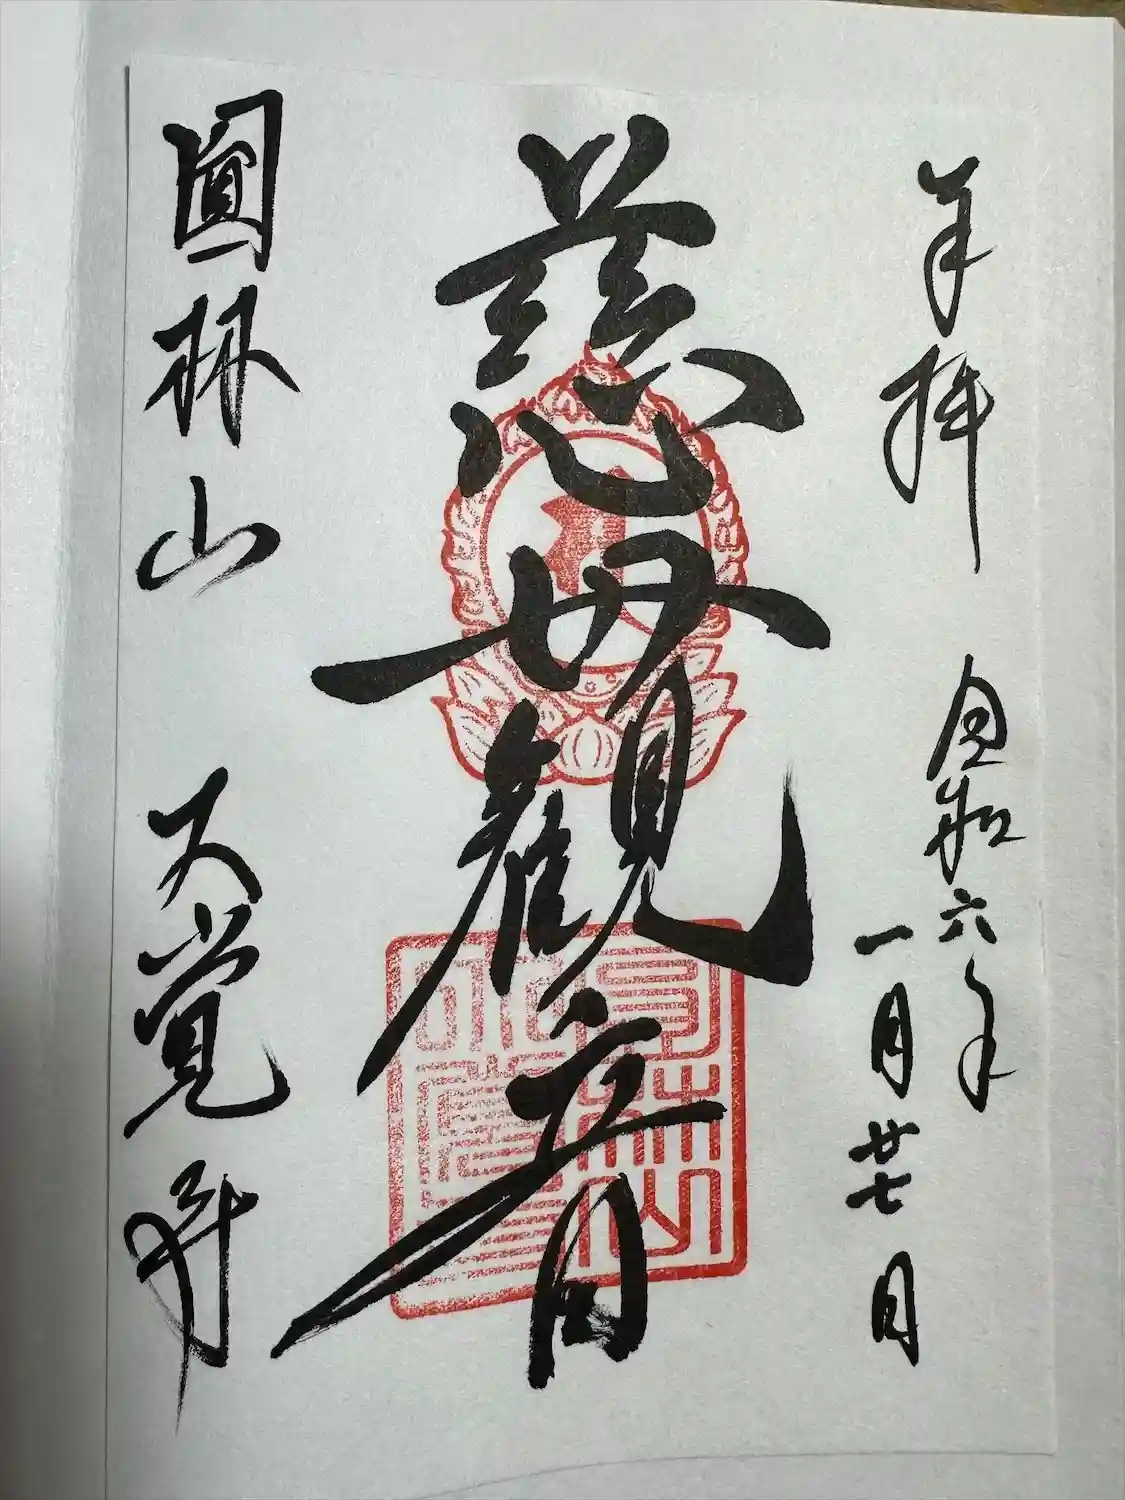 奉拝
令和六年
一月廿七日
慈母觀音
圓林山 大覚寺